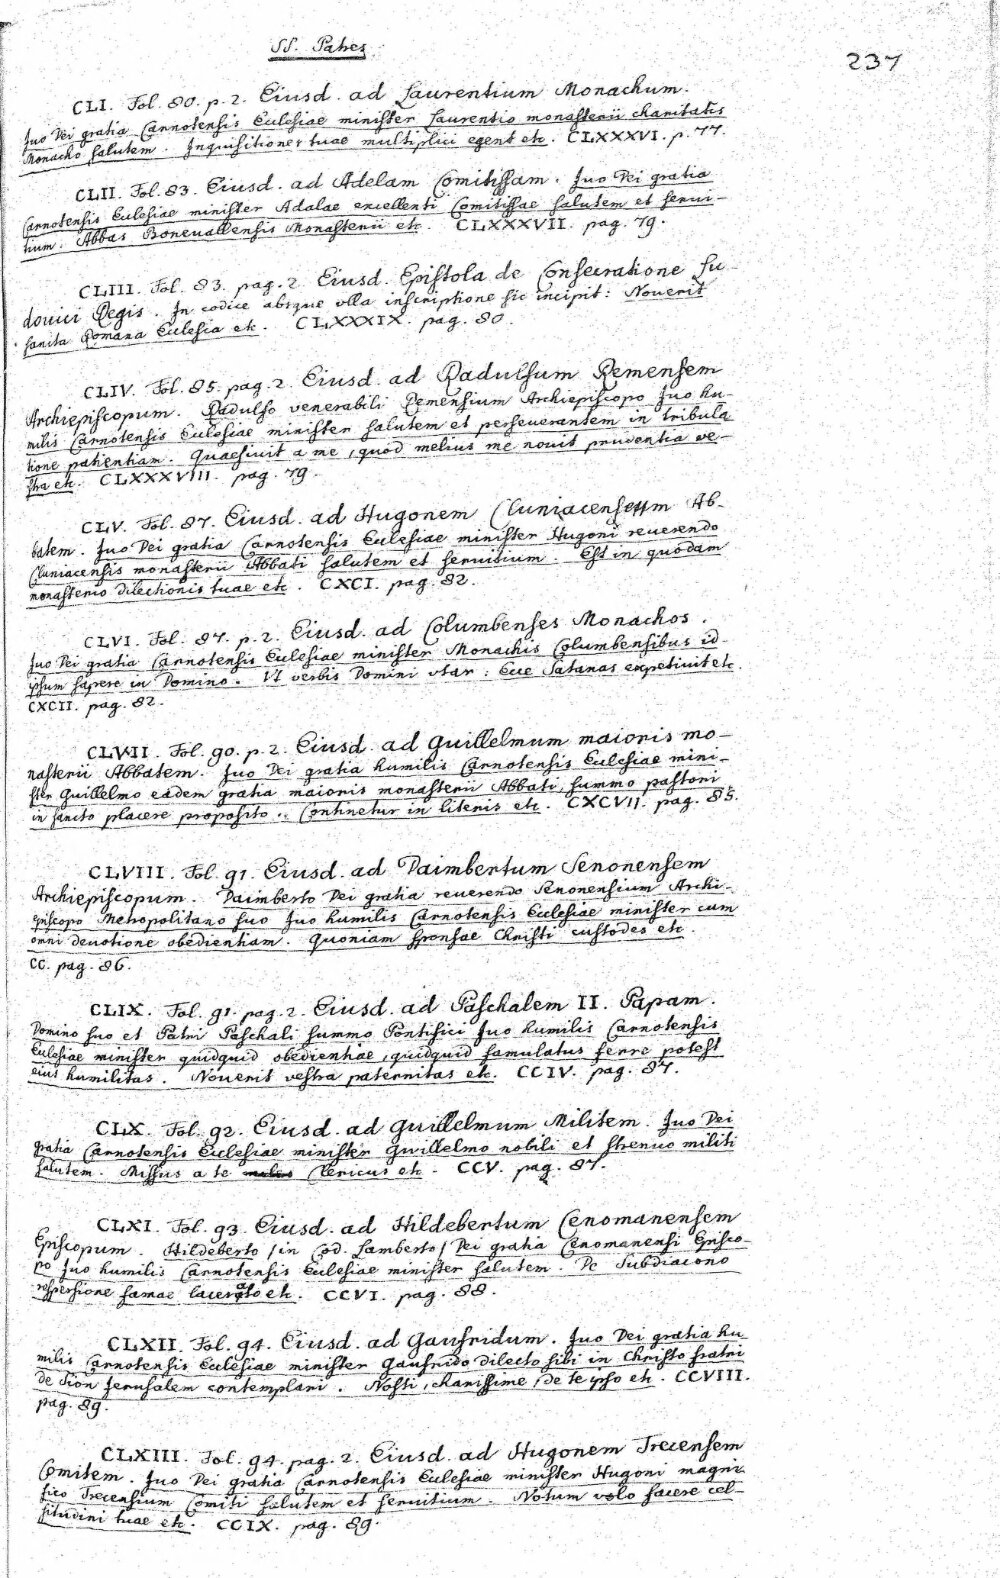 SS. Patres
237
CLI. Fol. 80. p. 2. Eiusd. ad Laurentium Monachum.
Juo Dei gratia Carnotensis Eulesiae minister Laurentio monasterii charitatis
Monacho salutem. Inquisitiones tuae multiplici egent etc. CLXXXVI. p. 77.
CLII. Fol. 83. Eiusd. ad Adelam Comitissam. Juo Dei gratia
Carnotensis Eulesiae minister Adalae excellenti Comitissae salutem et serui-
tium. Abbas Boneuallensis Monasterii etc. CLXXXVII. pag. 79.
CLIII. Fol. 83. pag. 2. Eiusd. Epistola de Consecratione Lu-
douici Regis. In codice absque vlla inscriptione sic incipit: Nouerit
sancta Romana Eulesia etc. CLXXXIX. pag. 80.
CLIV. Fol. 85. pag. 2. Eiusd. ad Radulsum Remensem
Archiepiscopum. Radulfo venerabili Remensium Archiepiscopo Juo hu-
milis Carnotensis Eulesiae minister salutem et perseuerantem in tribula
tione patientiam. Quaesiuit a me, quod melius me nouit prudentia ve-
stra etc. CLXXXVIII. pag. 79.
CLV. Fol. 87. Eiusd. ad Hugonem Cluniacensem Ab-
batem. Juo Dei gratia Carnotensis Eulesiae minister Hugoni reuerendo
Cluniacensis monasterii Abbati salutem et seruitium. Est in quodam
monasterio dilectionis tuae etc. CXCI. pag. 82.
CLVI. Fol. 87. p. 2. Eiusd. ad Columbenses Monachos.
Juo Dei gratia Carnotensis Eulesiae minister Monachis Columbensibus id
ipsum sapere in Domino. Vt verbis Domini vtar: Ecce Satanas expetiuit etc.
CXCII. pag. 82.
CLVII. Fol. 90. p. 2. Eiusd. ad Guillelmum maioris mo-
nasterii Abbatem. Juo Dei gratia humilis Carnotensis Eulesiae mini-
ster Guillelmo eadem gratia maioris monasterii Abbati summo pastori
in sancto placere proposito. Continetur in literis etc. CXCVII. pag. 85.
CLVIII. Fol. 91. Eiusd. ad Daimbertum Senonensem
Archiepiscopum. Daimberto Dei gratia reuerendo Senonensium Archi-
episcopo Metropolitano suo Juo humilis Carnotensis Ecclesiae minister cum
omni deuotione obedientiam. Quoniam sponsae Christi custodes etc.
CC. pag. 86.
CLIX. Fol. 91. pag. 2. Eiusd. ad Paschalem II. Papam.
Domino suo et Patri Paschali summo Pontifici Juo humilis Carnotensis
Eulesiae minister quidquid obedientiae, quidquid famulatus ferre potest
eius humilitas. Nouerit vestra paternitas etc. CCIV. pag. 87.
CLX. Fol. 92. Eiusd. ad Guillelmum Militem. Juo Dei
gratia Carnotensis Ecclesiae minister Guillelmo nobili et strenuo militi
salutem. Missus a te Clericus etc. CCV. pag. 87.
CLXI. Fol. 93. Eiusd. ad Hildebertum Cenomanensem
Episcopum. Hildeberto /in Cod. Lamberto/ Dei gratia Cenomanensi Episco-
po Juo humilis Carnotensis Eulesiae minister salutem. De Subdiacono
respersione famae lacerato etc. CCVI. pag. 88.
CLXII. Fol. 94. Eiusd. ad Gaufridum. Juo Dei gratia hu
milis Carnotensis Ecclesiae minister Gaufrido dilecto sibi in Christo fratri
de Sion Jerusalem contemplari. Nosti, charissime, de te ipso etc. CCVIII.
pag. 89.
CLXIII. Fol. 94. pag. 2. Eiusd. ad Hugonem Trecensem
Comitem. Juo Dei gratia Carnotensis Eulesiae minister Hugoni magni-
fico Trecensium Comiti salutem et seruitium. Notum volo facere cel-
situdini tuae etc. CCIX. pag. 89.